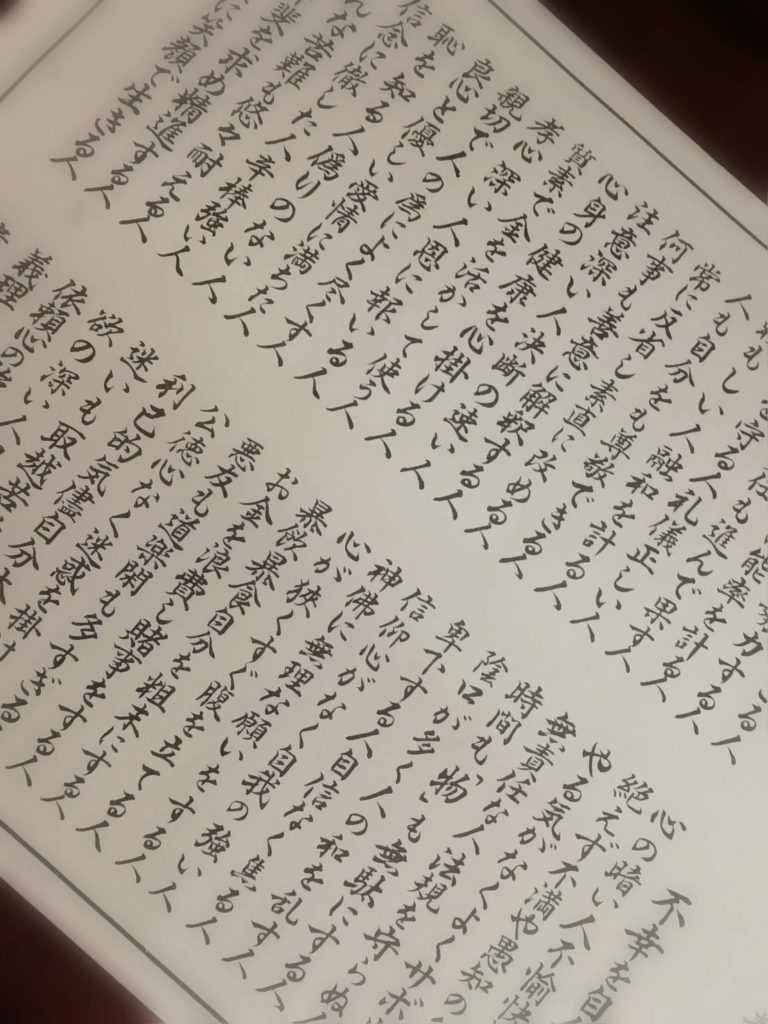 努力する人
能率を計る人
仕事も進んで果す人
を守る人礼儀正しい人
もしい人融和を計る人
人も自分も尊敬できる人
常に反省し素直に改める人
何事も善意に解釈する人
注意深い人決断の速い人
心身の健康を心掛ける人
質素で金を活かして使う人
孝心深い人恩に報いる人
親切で人の為によく尽くす人
良心と優しい愛情に満ちた人
恥を知る人偽りのない人
信念に徹した人辛棒強い人
んな苦難も悠々耐える人
斐を求め精進する人
に笑顔で生きる人
不幸を自
心の暗い人不愉快
絶えず不満や愚知の
やる気がなくよくサボ
無責任な人法規を守らぬ
時間も物も無駄にする人
陰口が多く人の和を乱す人
卑下する人自信なく焦る人
信仰心がなく自我の強い人
神佛に無理な願いをする人
心が狭くすぐ腹を立てる人
暴飲暴食自分を粗末にする人
お金を浪費し賭事をする人
悪友も道楽閑も多すぎる人
公徳心なく迷惑を掛ける
利己的気儘自分本
迷いも取越苦
欲の深い人
依頼心の強
義理